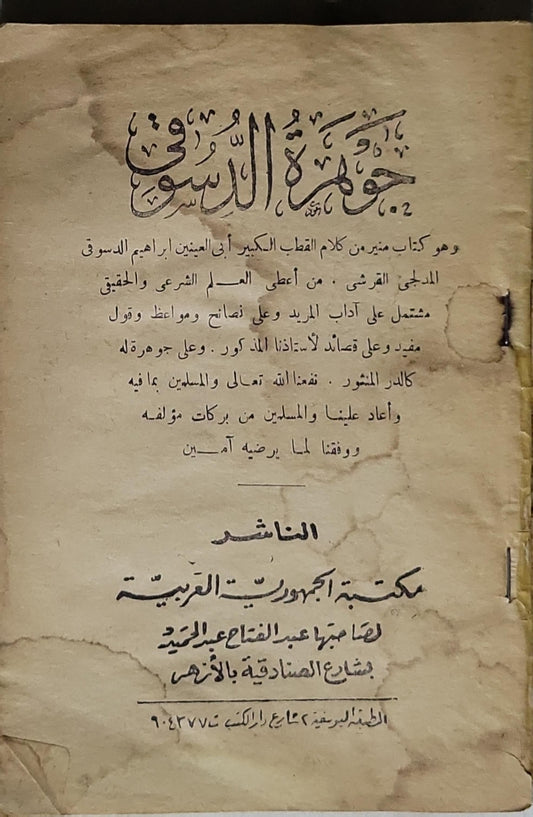 جَوْهَرَةُ الدُّسُوقِي
وهو كتاب منير من كلام القطب الكبير أبى العينين ابراهيم الدسوقى
المدلجى القرشى . من أعطى العلم الشرعى والحقيقى
مشتمل على آداب المريد وعلى نصائح ومواعظ وقول
مفيد وعلى قصائد لأستاذنا المذكور . وعلى جوهرة له
كالدر المنثور . نفعنا الله تعالى والمسلمين بما فيه
وأعاد علينا والمسلمين من بركات مؤلفه
ووفقنا لما يرضيه آمين
الناشر
مكتبة الجمهوريّة العربيّة
لصاحبها عبد الفتاح عبد الحميد
بشارع الصنادقية بالأزهر
اليوسفية ٢ شارع دار الكتب ت ٩٠٤٣٧٧